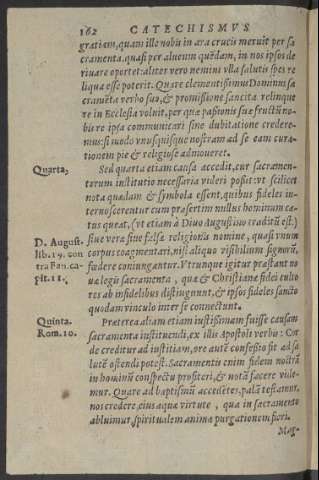 162 CATECHISMVS
gratiam, quam ille nobis in ara crucis meruit per sa
cramenta, quasi per alueum quēdam, in nos ipsos de
riuare oportet: aliter vero nemini vlla salutis spes re
liqua esse poterit. Quare clementissimus Dominus sa
cramēta verbo suo, & promissione sancita relinque
re in Ecclesia voluit, per quæ passionis suæ fructū no-
bis re ipsa communicari sine dubitatione credere-
mus: si modo vnusquisque nostrum ad se eam cura-
tionem pie & religiose admoueret.
Quarta, Sed quarta etiam causa accedit, cur sacramen-
torum institutio necessaria videri possit: vt scilicet
nota quædam & symbola essent, quibus fideles in-
ternoscerentur cum præsertim nullus hominum cœ-
tus queat, (vt etiam à Diuo Augustino traditū est.)
D. August. siue vera siue falsa religionis nomine, quasi vnum
lib. 19. con corpus coagmentari, nisi aliquo visibilium signorū,
tra Fau. ca- fœdere coniungantur. Vtrunque igitur præstant no
pit. 11. uæ legis sacramenta, quæ & Christianæ fidei culto
res ab infidelibus distinguunt, & ipsos fideles sancto
quodam vinculo inter se connectunt.
Quinta. Præterea aliam etiam iustissimam fuisse causam
Rom. 10. sacramenta instituendi, ex illis Apostoli verbis: Cor
de creditur ad iustitiam, ore autē confessio fit ad sa
lutē ostendi potest. Sacramentis enim fidem nostrā
in hominū conspectu profiteri, & notā facere vide-
mur. Quare ad baptismū accedētes, palā testamur,
nos credere, eius aquæ virtute, qua in sacramento
abluimur, spiritualem animæ purgationem fieri.
Mag-